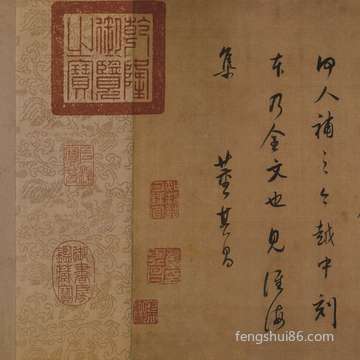 人補之今越中刻
本乃全文也見淮海
集
董其昌
乾隆
御覽
之寶
御書房
鑑藏寶
fengshui86.com